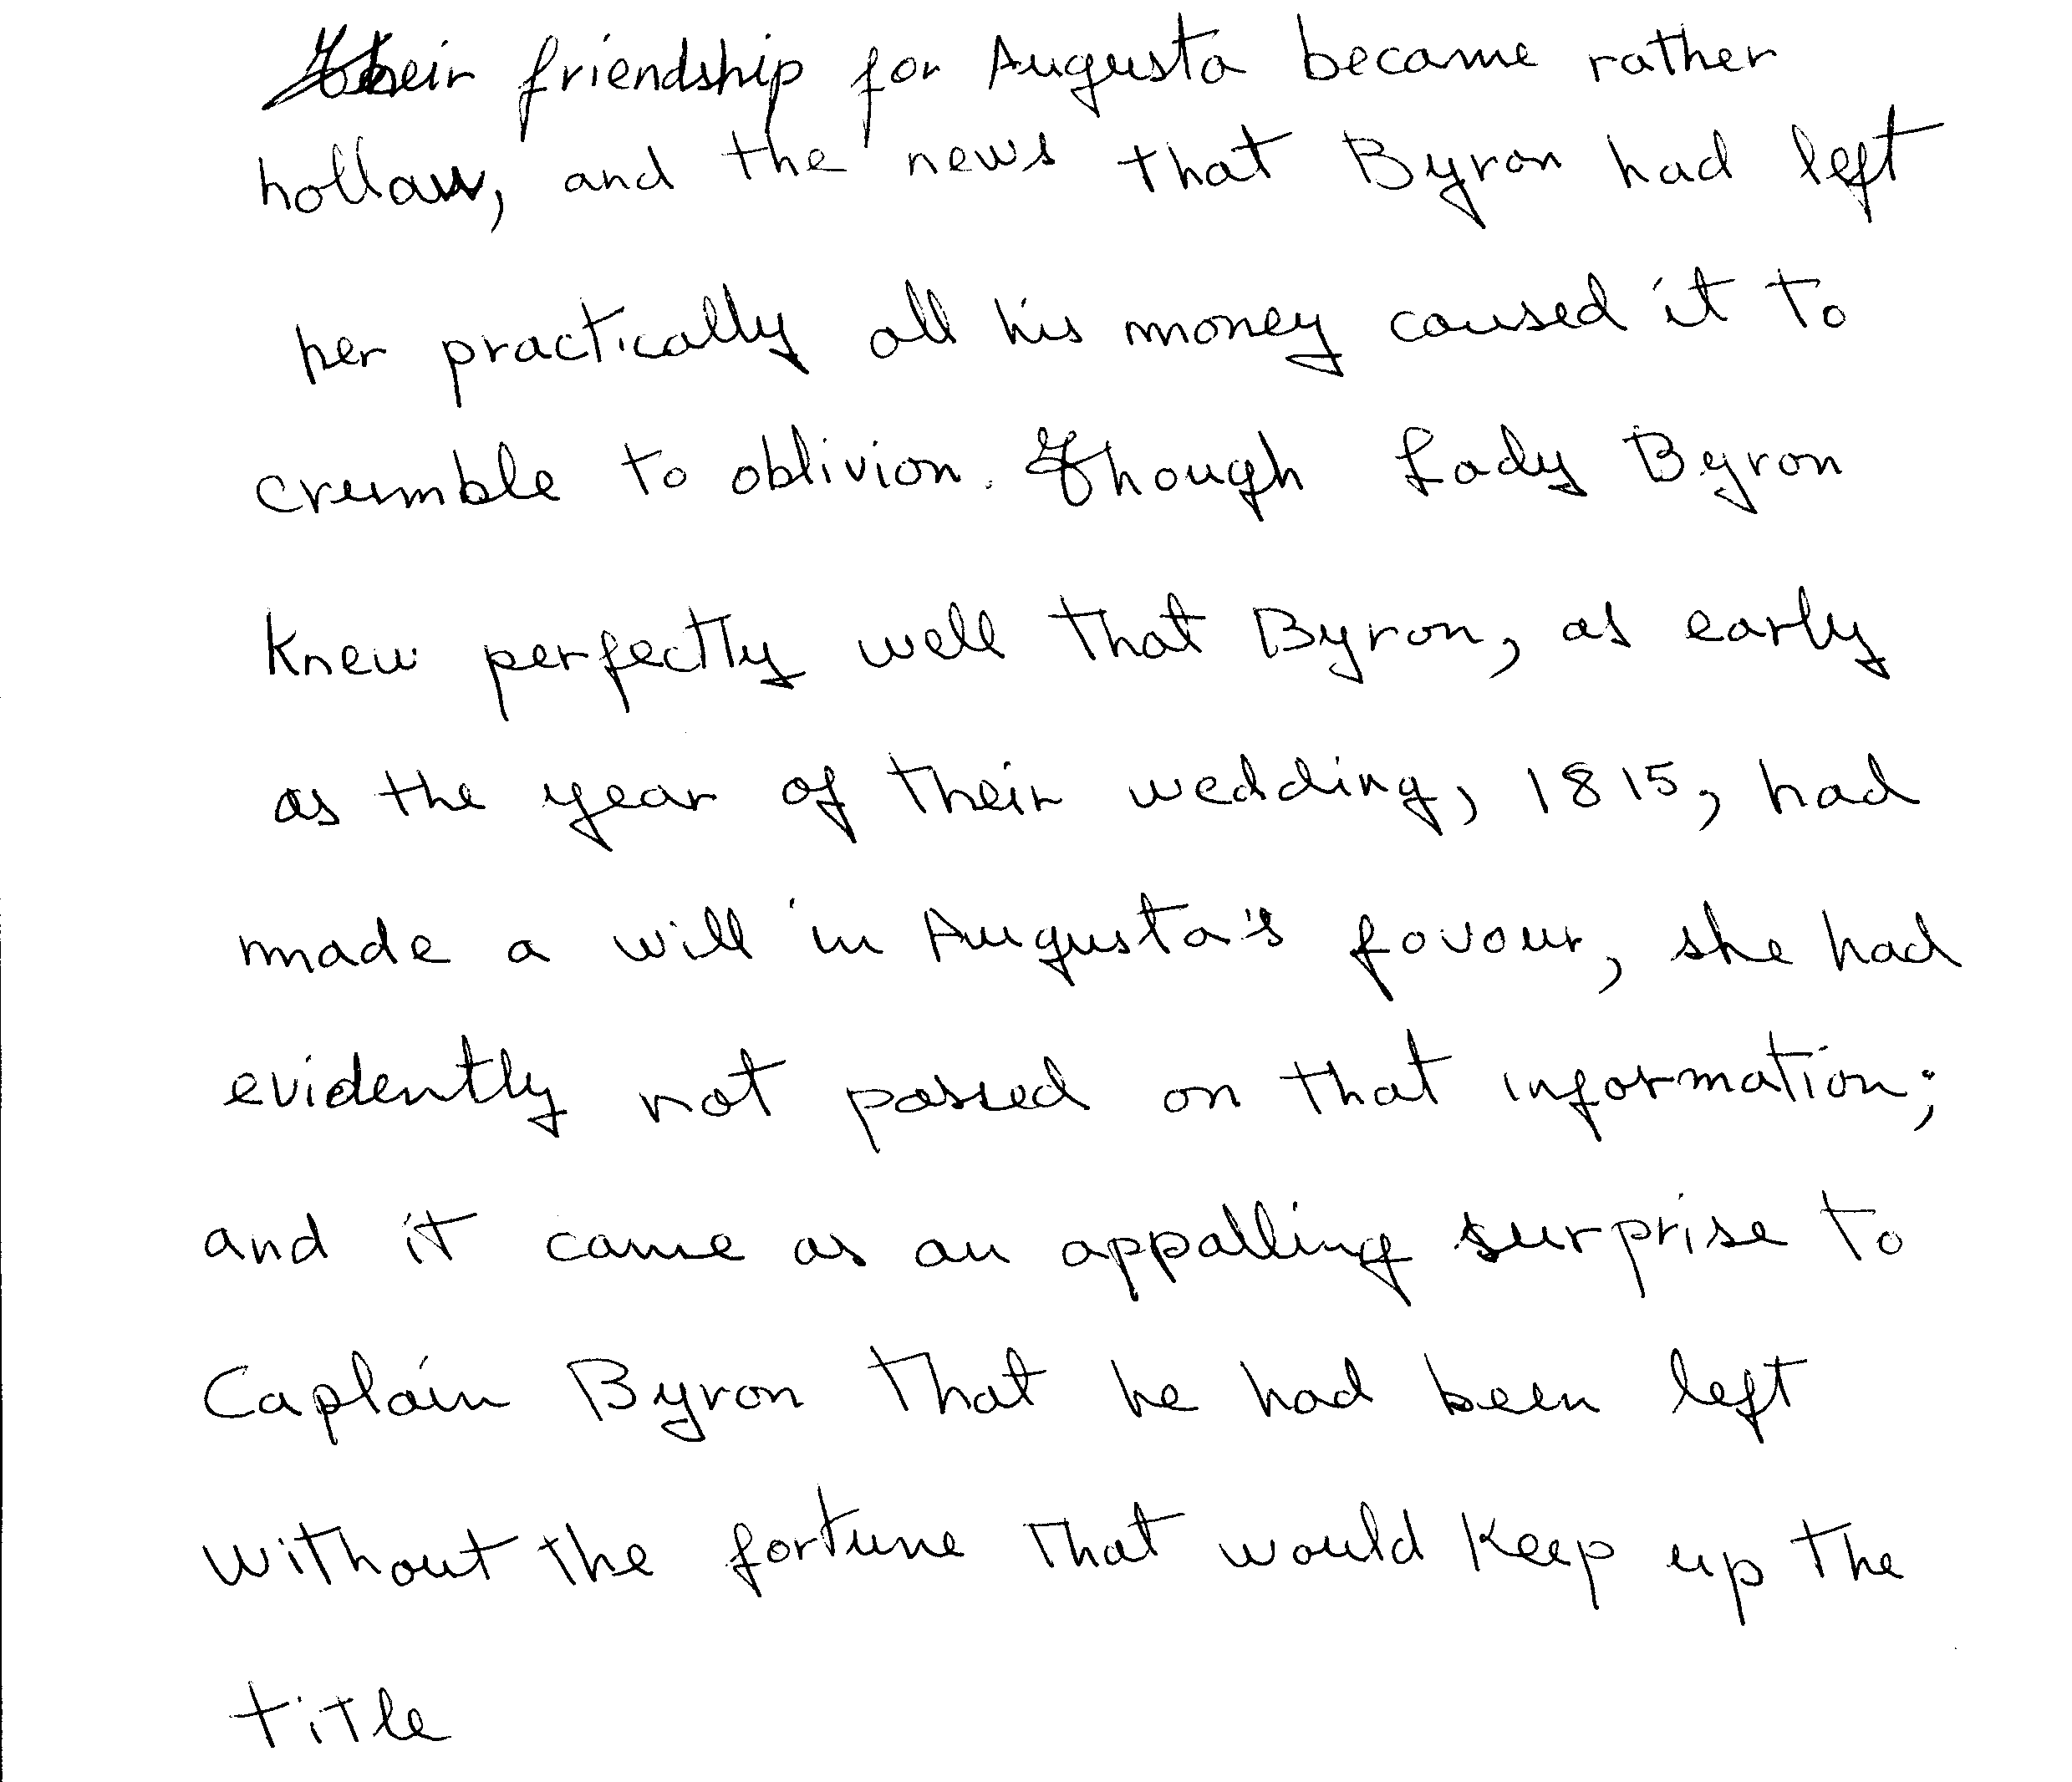 Their friendship for Augusta became rather
hollow, and the news that Byron had left
her practically all his money caused it to
crumble to oblivion. Though Lady Byron
knew perfectly well that Byron, as early
as the year of their wedding, 1815, had
made a will in Augusta's favour, she had
evidently not passed on that information;
and it came as an appalling surprise to
Captain Byron that he had been left
without the fortune that would keep up the
title